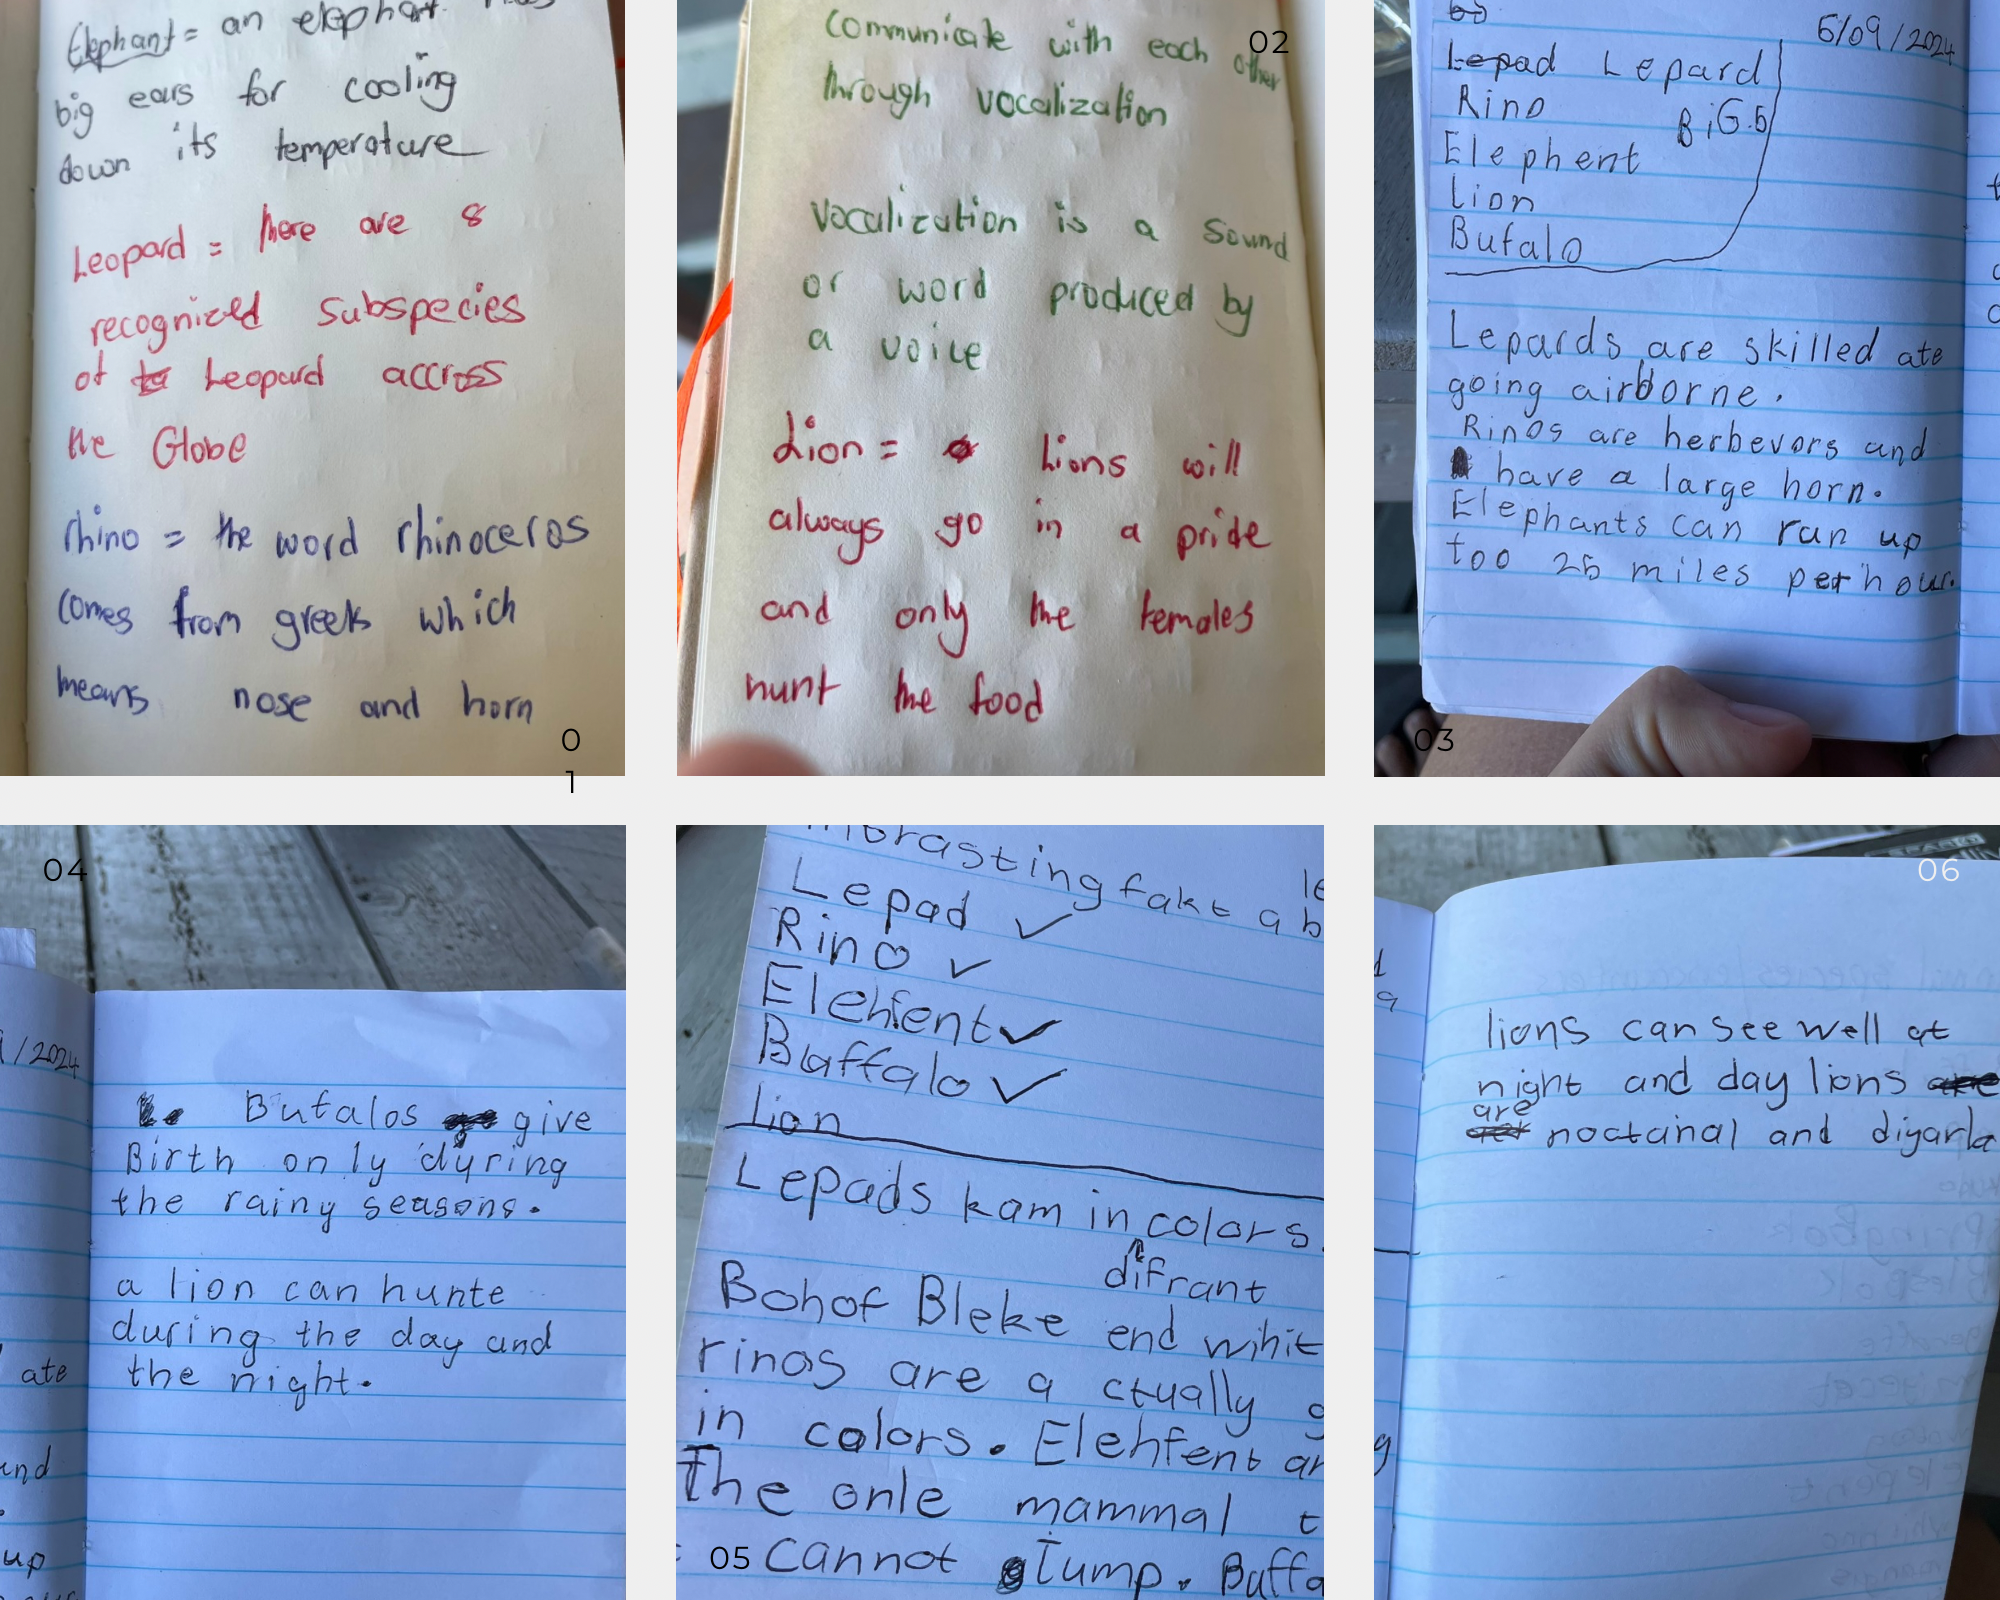 Elephant = an elephant has
big ears for cooling
down its temperature
Leopard = there are 8
recognized subspecies
of Leopard accross
the Globe
rhino = the word rhinoceros
comes from greek which
means nose and horn
01
communicate with each other
through vocalization
vocalization is a sound
or word produced by
a voice
Lion = Lions will
always go in a pride
and only the females
hunt the food
02
6/09/2024
Lepad Lepard
Rino
BiG.5
Elephent
Lion
Bufalo
Lepards are skilled ate
going airborne.
Rinos are herbevors and
have a large horn.
Elephants can run up
too 25 miles per hour.
03
04
/2024
Bufalos give
Birth only during
the rainy seasons.
a lion can hunte
during the day and
the night.
ate
up
intrasting fakt ab
Lepad ✓
Rino ✓
Elehfent ✓
Buffalo ✓
Lion
Lepads kam in colors.
difrant
Bohof Bleke end wihit
rinos are actually g
in colors. Elehfent ar
The onle mammal t
cannot Jump. Buffa
05
06
lions can see well at
night and day lions are
are noctinal and diyarla